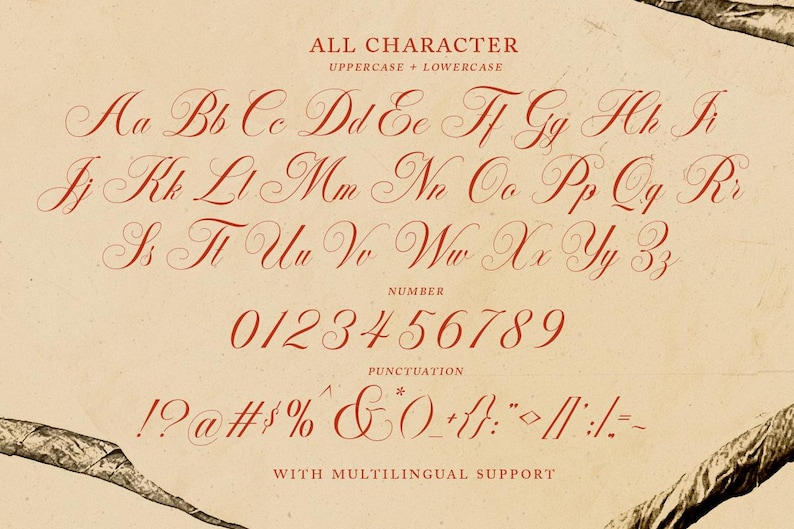 ALL CHARACTER
UPPERCASE + LOWERCASE
Aa Bb Cc Dd Ee Ff Gg Hh Ii
Jj Kk Ll Mm Nn Oo Pp Qq Rr
Ss Tt Uu Vv Ww Xx Yy Zz
NUMBER
0123456789
PUNCTUATION
!?@#$%^&*()_+{}:"<>[]';/.,=~
WITH MULTILINGUAL SUPPORT